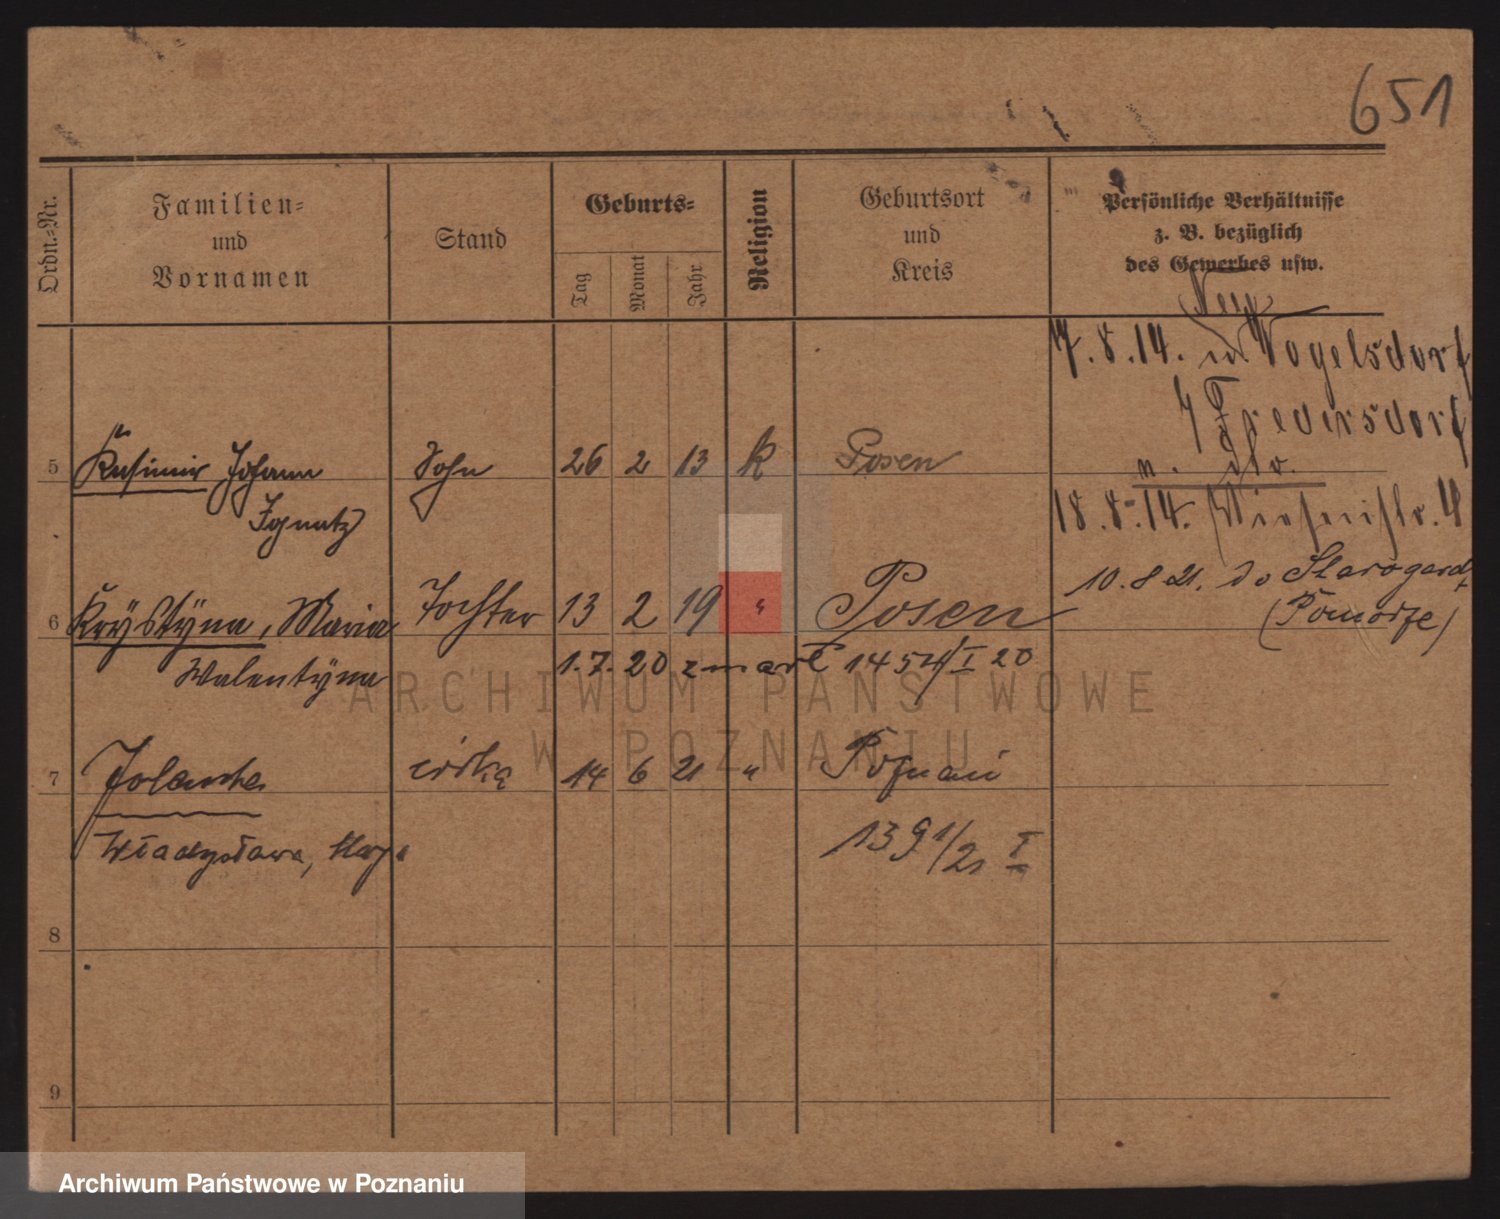 651
Ordn.-Nr.
Familien-
und
Vornamen
Stand
Geburts-
Tag
Monat
Jahr
Religion
Geburtsort
und
Kreis
Persönliche Verhältnisse
z. B. bezüglich
des Gewerbes usw.
7.8.14. Vogelsdorf
Fredersdorf
5 Kasimir Johann Sohn 26 2 13 k Posen
Ignatz
18.8.14.
10.8.21. do Starogard
(Pomorze)
6 Krystyna, Maria Tochter 13 2 19 " Posen
Walentyna
1.7.20 zmarł 1454/I 20
7 Jolanta córka 14 6 21 " Poznań
Władysława, Marja
1391/21 I
8
9
ARCHIWUM PAŃSTWOWE
W POZNANIU
Archiwum Państwowe w Poznaniu